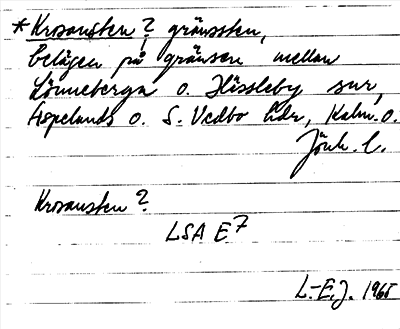 *Krosausten? gränssten,
belägen på gränsen mellan
Lönneberga o. Hässleby snr,
Aspelands o. S. Vedbo hdr, Kalm. o.
Jönk. l.
Krosausten?
LSA E7
L-E.J. 1965